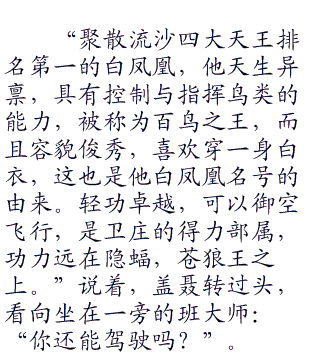 “聚散流沙四大天王排
名第一的白凤凰，他天生异
禀，具有控制与指挥鸟类的
能力，被称为百鸟之王，而
且容貌俊秀，喜欢穿一身白
衣，这也是他白凤凰名号的
由来。轻功卓越，可以御空
飞行，是卫庄的得力部属，
功力远在隐蝠，苍狼王之
上。”说着，盖聂转过头，
看向坐在一旁的班大师：
“你还能驾驶吗？”。